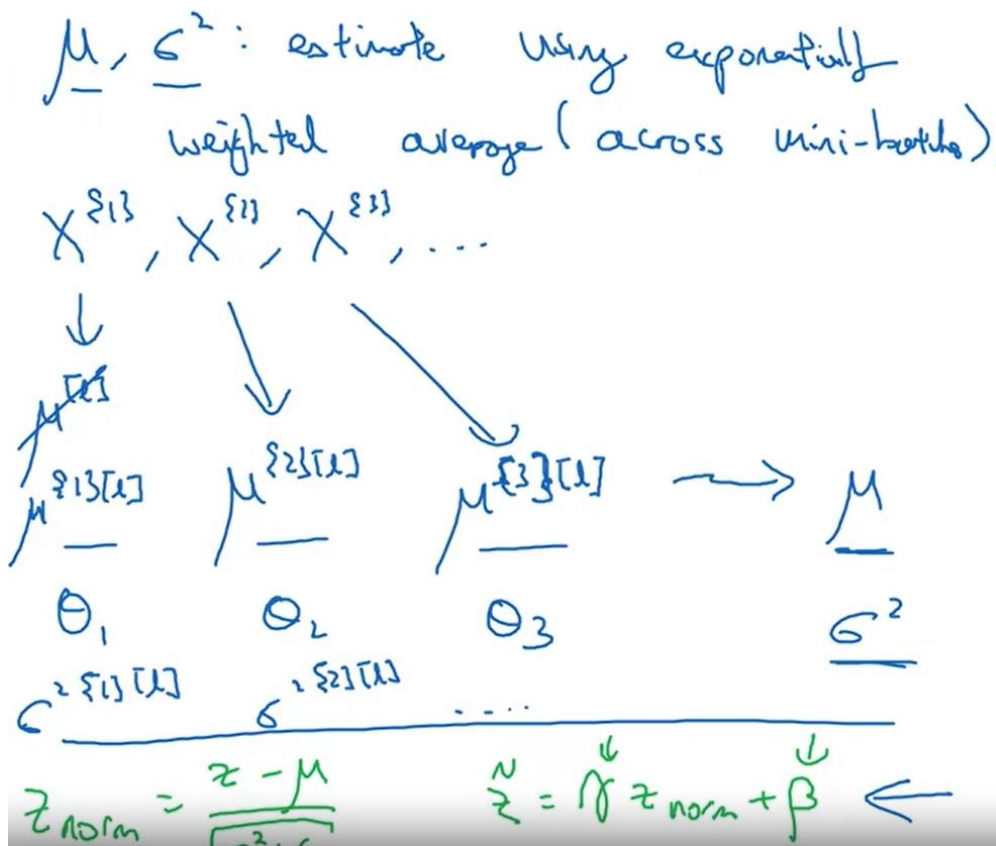 μ, σ² : estimate using exponentially
weighted average (across mini-batches)
X^{1}, X^{2}, X^{3}, ....
μ^[l]
μ^{1}[l] μ^{2}[l] μ^{3}[l] → μ
θ₁ θ₂ θ₃ σ²
σ²^{1}[l] σ²^{2}[l] ....
z_norm = (z - μ) / √(σ² + ε) z̃ = γ z_norm + β ←